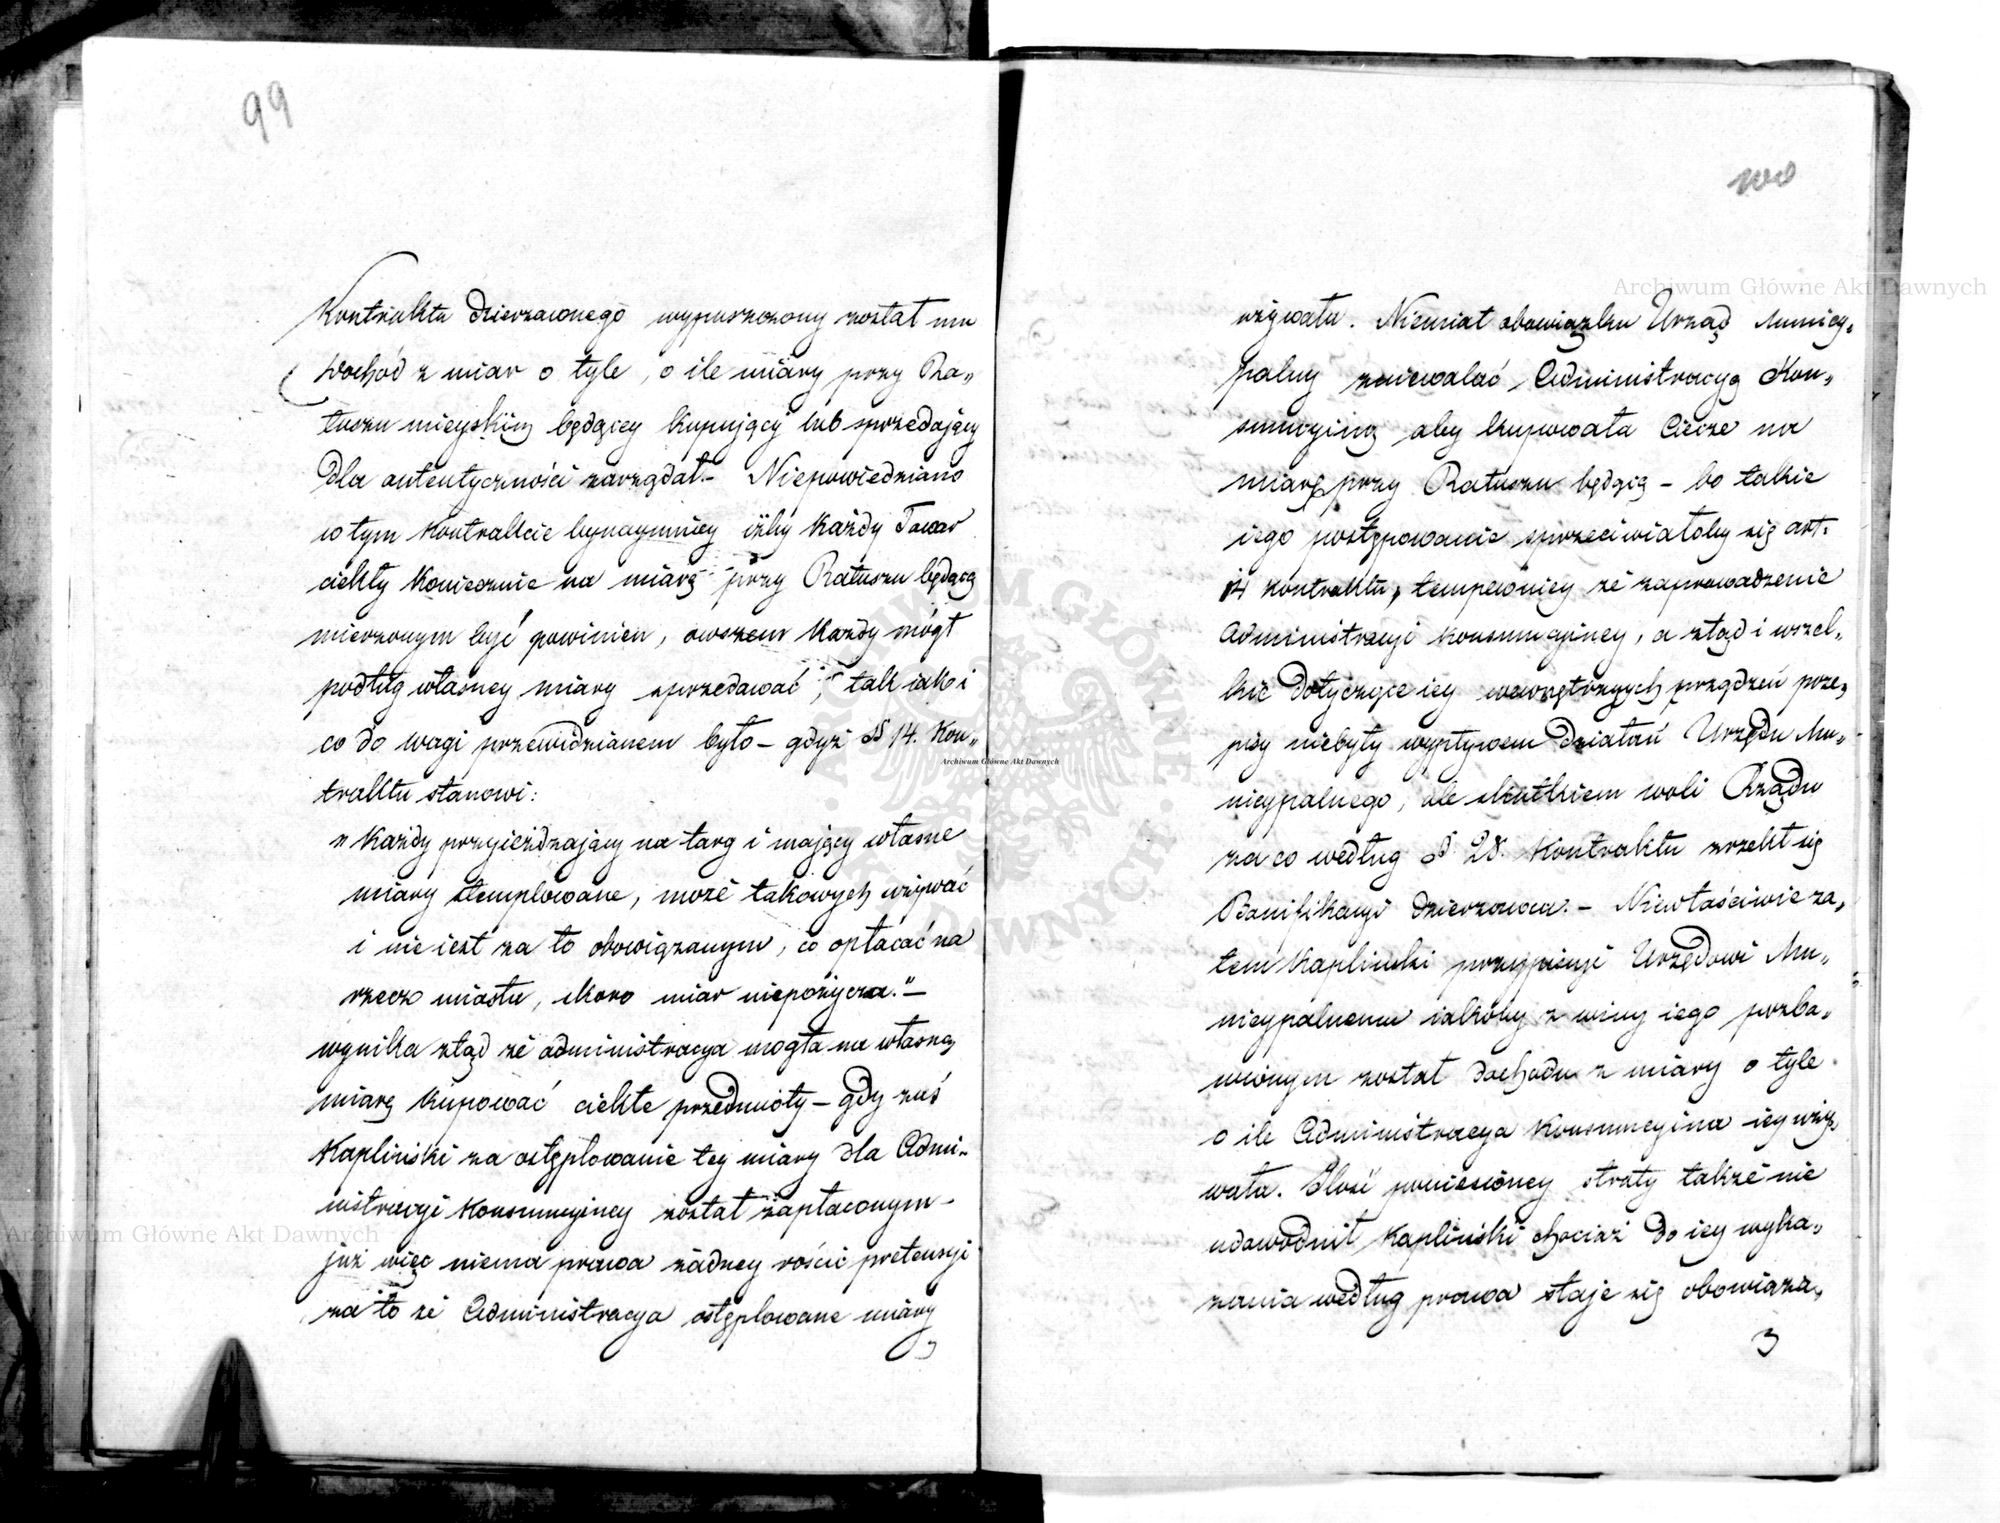 99
Kontraktu dzierzawnego wypuszczony został mu
dochód z miar o tyle, o ile miary przy Ra„
tuszu mieyskim będącey kupujący lub sprzedający
dla autentyczności zarządał.– Niepowiedziano
w tym kontrakcie bynaymniey iżby każdy Towar
ciekły koniecznie na miarę przy Ratuszu będącą
mierzonym być powinien, owszem każdy mógł
podług własney miary sprzedawać, tak iak i
co do wagi przewidzianem było – gdyż § 14. Kon„
traktu stanowi:
„ Każdy przyieżdzający na targ i mający własne
miary stemplowane, może takowych używać
i nie iest za to obowiązanym, co opłacać na
rzecz miasta, skoro miar niepożycza."–
wynika ztąd że administracya mogła na własną
miarę kupować ciekłe przedmioty – gdy zaś
Kapliński za ostęplowanie tey miary dla Admi„
nistracyi Konsumcyiney został zapłaconym –
już więc niema prawa żadney rościć pretensyi
za to że Administracya ostęplowane miary
100
używała. Niemiał obowiązku Urząd Municy„
palny zniewalać Administracyą Kon„
sumcyiną aby kupowała Ciecze na
miarę przy Ratuszu będącą – bo takie
iego postępowanie sprzeciwiałoby się art.
14 kontraktu, tempewniey że zaprowadzenie
Administracyi Konsumcyiney, a ztąd i wszel„
kie dotyczące iey wewnętrznych porządzeń prze„
pisy niebyły wypływem działań Urzędu Mu„
nicypalnego, ale skutkiem woli Rządu
za co według § 28. Kontraktu zrzekł się
Bonifikacyi dzierzawca. – Niewłaściwie za„
tem Kapliński przypisuje Urzędowi Mu„
nicypalnemu iakoby z winy iego pozba„
wionym został dochodu z miary o tyle
o ile Administracya Konsumcyina iey uży„
wała. Ilość poniesioney straty także nie
udowodnił Kapliński chociaż do iey wyka„
zania według prawa staje się obowiąza„
3
Archiwum Główne Akt Dawnych
Archiwum Główne Akt Dawnych
Archiwum Główne Akt Dawnych
ARCHIWUM GŁÓWNE AKT DAWNYCH